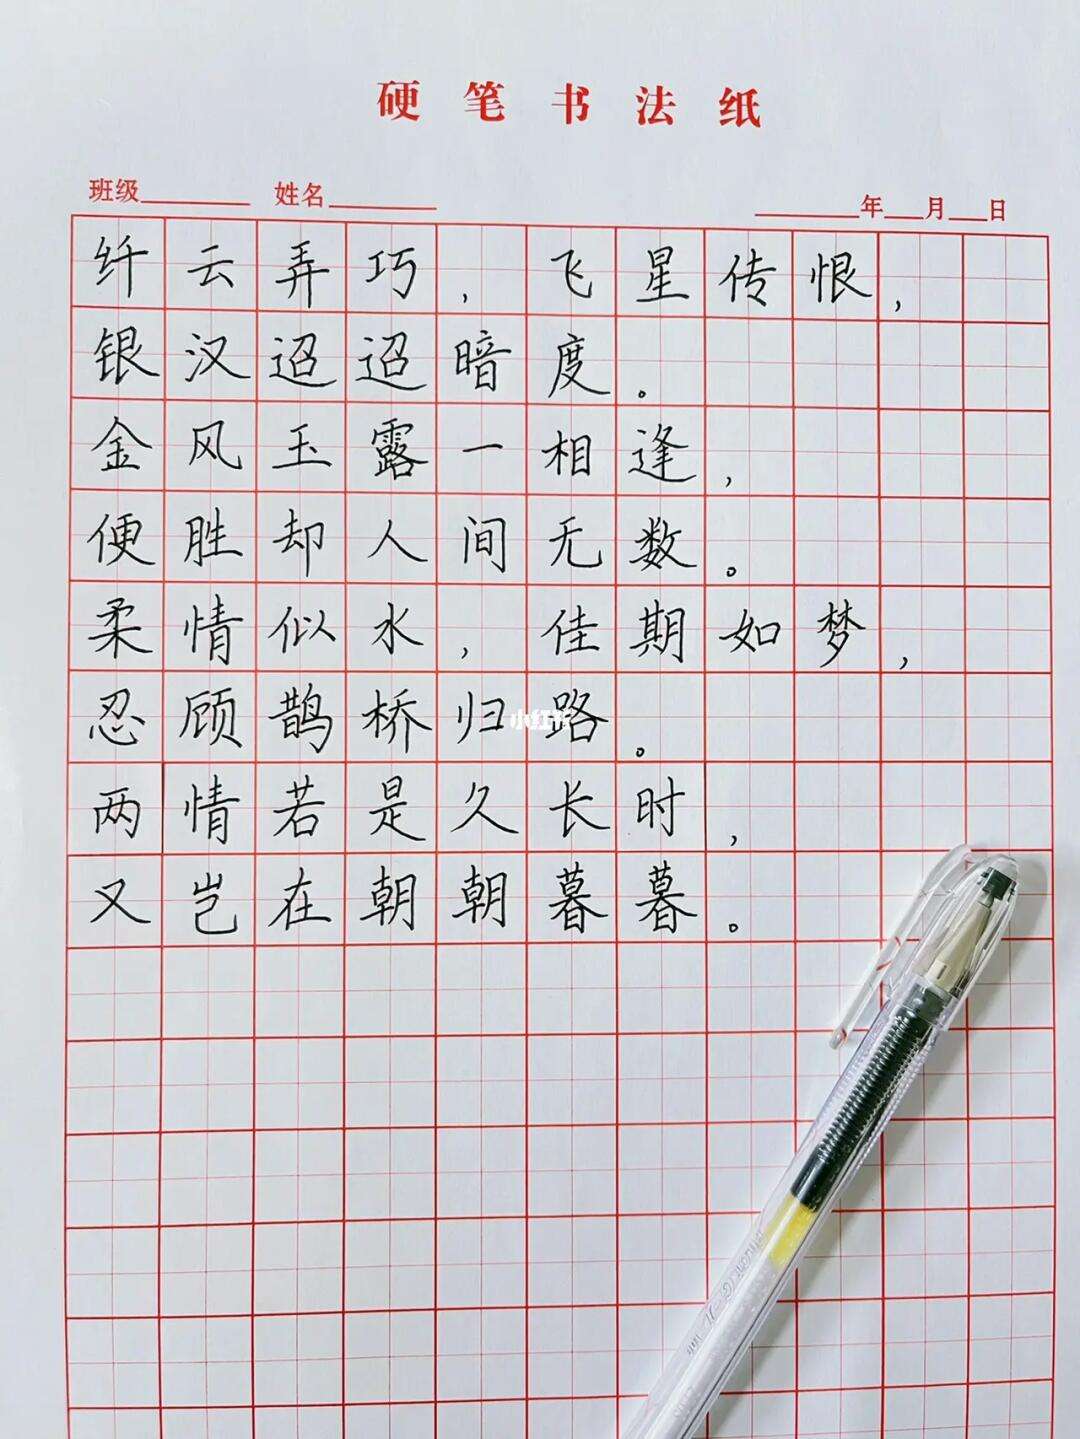 硬笔书法纸
班级 姓名 年 月 日
纤云弄巧，飞星传恨，
银汉迢迢暗度。
金风玉露一相逢，
便胜却人间无数。
柔情似水，佳期如梦，
忍顾鹊桥归路。
小红书
两情若是久长时，
又岂在朝朝暮暮。